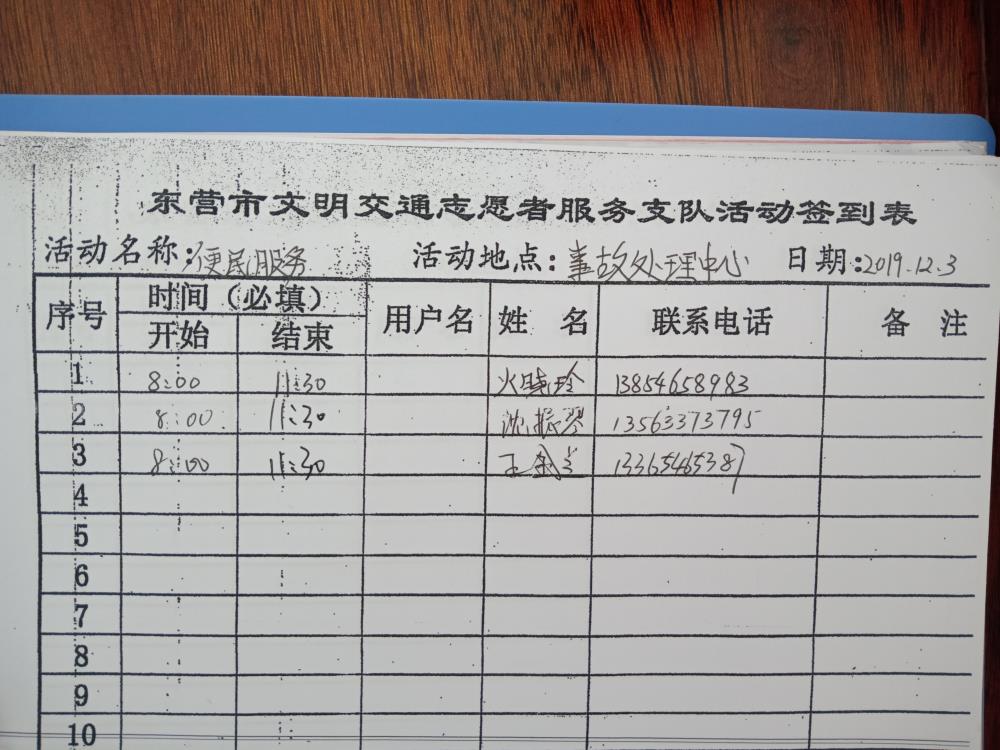 东营市文明交通志愿者服务支队活动签到表
活动名称：便民服务 活动地点：事故处理中心 日期：2019.12.3
序号 时间（必填） 用户名 姓 名 联系电话 备 注
开始 结束
1 8:00 11:30 火晓玲 13854658983
2 8:00 11:30 沈振翠 13563373795
3 8:00 11:30 王金兰 13365465387
4
5
6
7
8
9
10